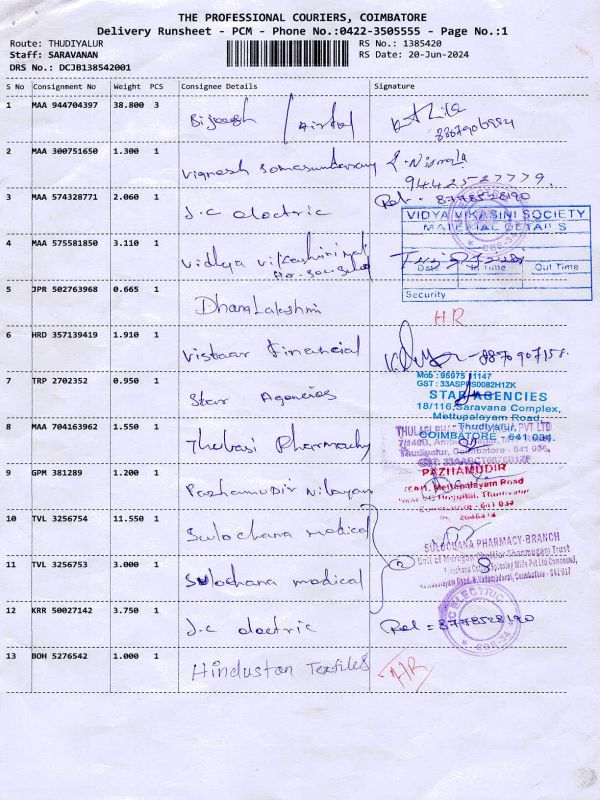 THE PROFESSIONAL COURIERS, COIMBATORE
Delivery Runsheet - PCM - Phone No.:0422-3505555 - Page No.:1
Route: THUDIYALUR
RS No.: 1385420
Staff: SARAVANAN
RS Date: 20-Jun-2024
DRS No.: DCJB138542001
S No Consignment No Weight PCS Consignee Details Signature
1 MAA 944704397 38.800 3 Airtel
2 MAA 300751650 1.300 1 Vignesh Somasundaram
3 MAA 574328771 2.060 1 J.C electric 8778528190
VIDYA VIKASINI SOCIETY
MATERIAL DETAILS
4 MAA 575581850 3.110 1 Vidhya
Date In Time Out Time
Security
5 JPR 502763968 0.665 1 DhanaLakshmi HR
6 HRD 357139419 1.910 1 Vistaar Financial
Mob : 95975 11147
7 TRP 2702352 0.950 1 Star Agencies
STAR AGENCIES
18/116,Saravana Complex,
Mettupalayam Road,
Thudiyalur,
COIMBATORE - 641 034.
8 MAA 704163962 1.550 1 Thulasi Pharmachy
9 GPM 381289 1.200 1 Pazhamudir Nilayam
PAZHAMUDIR
Mettupalayam Road
10 TVL 3256754 11.550 1 Sulochana medical
SULOCHANA PHARMACY-BRANCH
11 TVL 3256753 3.000 1 Sulochana medical
2
12 KRR 50027142 3.750 1 J.C electric 8778528190
ELECTRIC
CBE-34
13 BOH 5276542 1.000 1 Hindustan Textiles HR